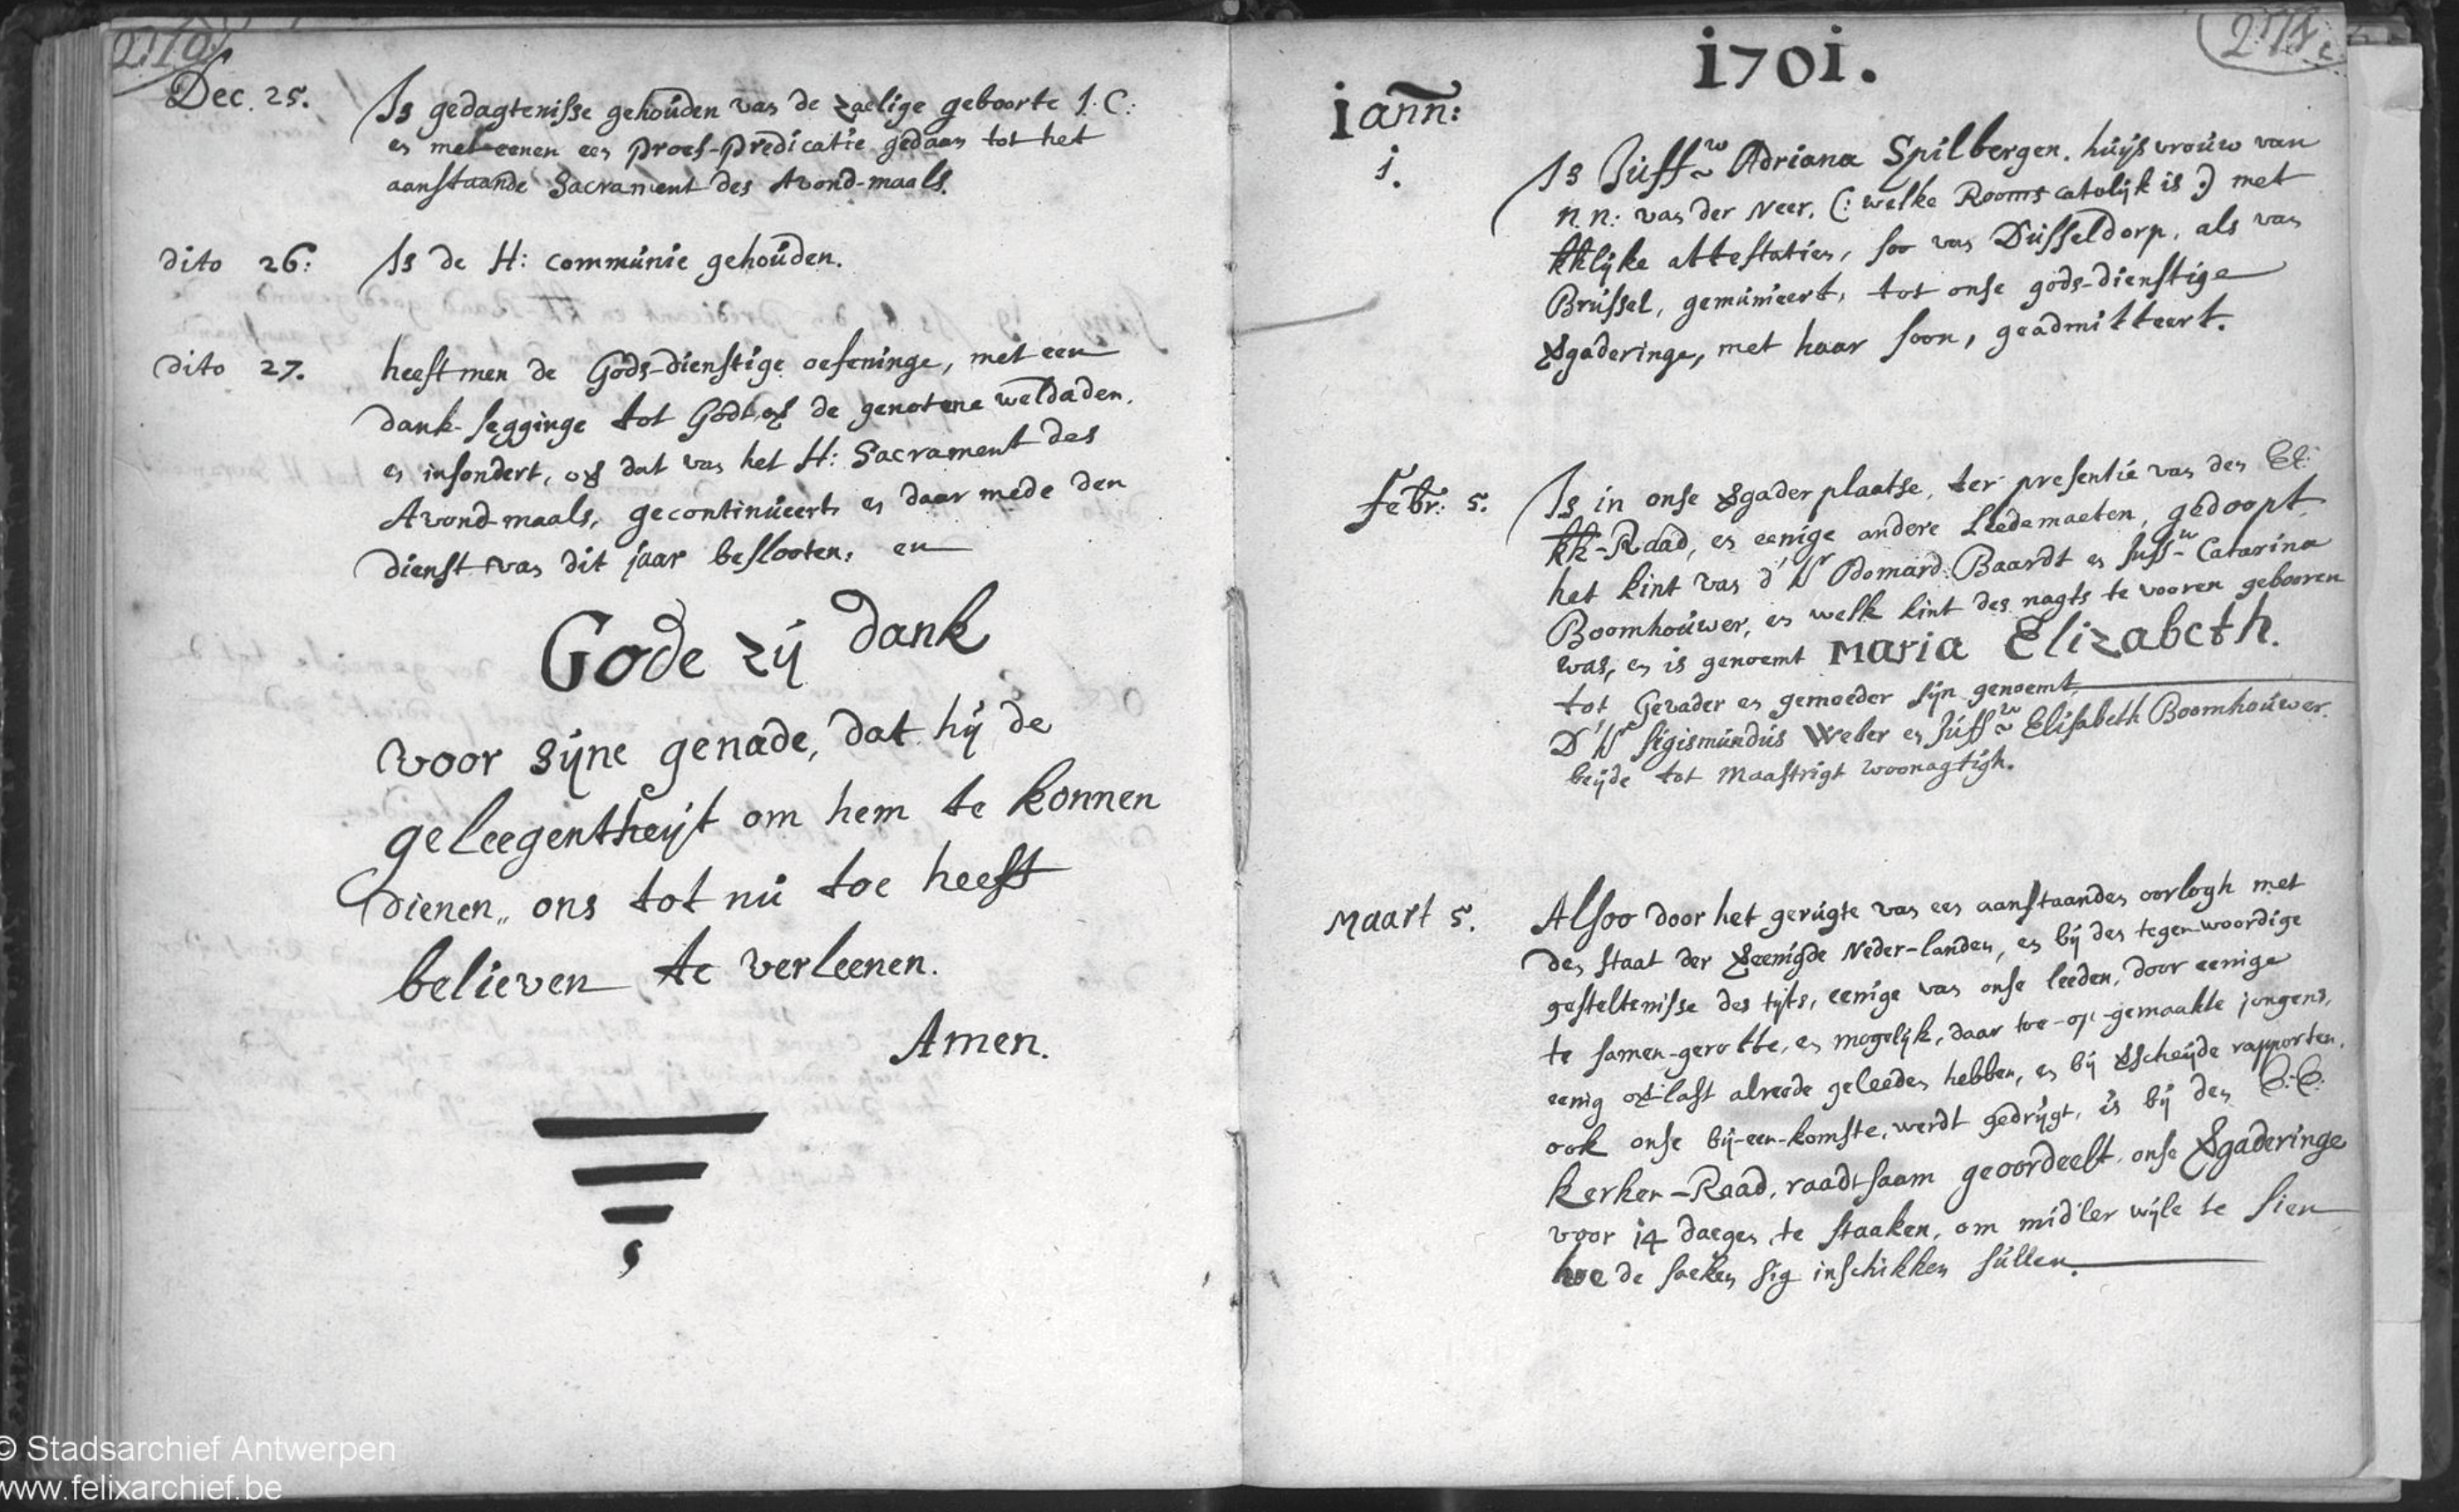 Dec. 25. Is gedagtenisse gehouden van de zaelige geboorte J. C:
en met eenen een proef-predicatie gedaan tot het
aanstaande Sacrament des Avond-maals.
dito 26: Is de H: communie gehouden.
dito 27. heeft men de Gods-dienstige oefeninge, met een
dank-segginge tot Godt, de genotene weldaden,
en insondert, dat van het H: Sacrament des
Avond-maals, gecontinueert, en daar mede den
dienst van dit jaar beslooten, en
Gode zij dank
voor sijne genade, dat hij de
geleegentheijt om hem te konnen
dienen,, ons tot nu toe heeft
believen te verleenen.
Amen.
1701.
Iann:
1. Is Juffw Adriana Spilbergen, huijsvrouw van
n.n: van der Neer, (: welke Rooms catolijk is :) met
kklijke attestatien, soo van Dusseldorp, als van
Brussel, gemunieert, tot onse gods-dienstige
Vgaderinge, met haar soon, geadmitteert.
Febr: 5. Is in onse Vgaderplaatse, ter presentie van den
kk-Raad, en eenige andere Leedemaeten, gedoopt
het kint van d'Hr Odomard Baardt en Juffw Catarina
Boomhouwer, en welk kint des nagts te vooren gebooren
was, en is genoemt Maria Elizabeth.
tot Gevader en gemoeder sijn genoemt
D'Hr Sigismundus Weber en Juffw Elisabeth Boomhouwer.
beijde tot Maastrigt woonagtigh.
Maart 5. Alsoo door het gerugte van een aanstaanden oorlogh met
den staat der Vleenigde Neder-landen, en bij den tegenwoordige
gesteltenisse des tijts, eenige van onse leeden, door eenige
te samen-gerotte, en mogelijk, daar toe-op-gemaakte jongens,
eenig ovlast alreede geleeden hebben, en bij Vscheijde rapporten,
ook onse bij-een-komste, werdt gedrijgt, is bij den E:E:
kerken-Raad, raadtsaam geoordeelt, onse Vgaderinge
voor 14 daegen te staaken, om midler wijle te sien
hoe de saeken sig inschikken sullen.
© Stadsarchief Antwerpen
www.felixarchief.be